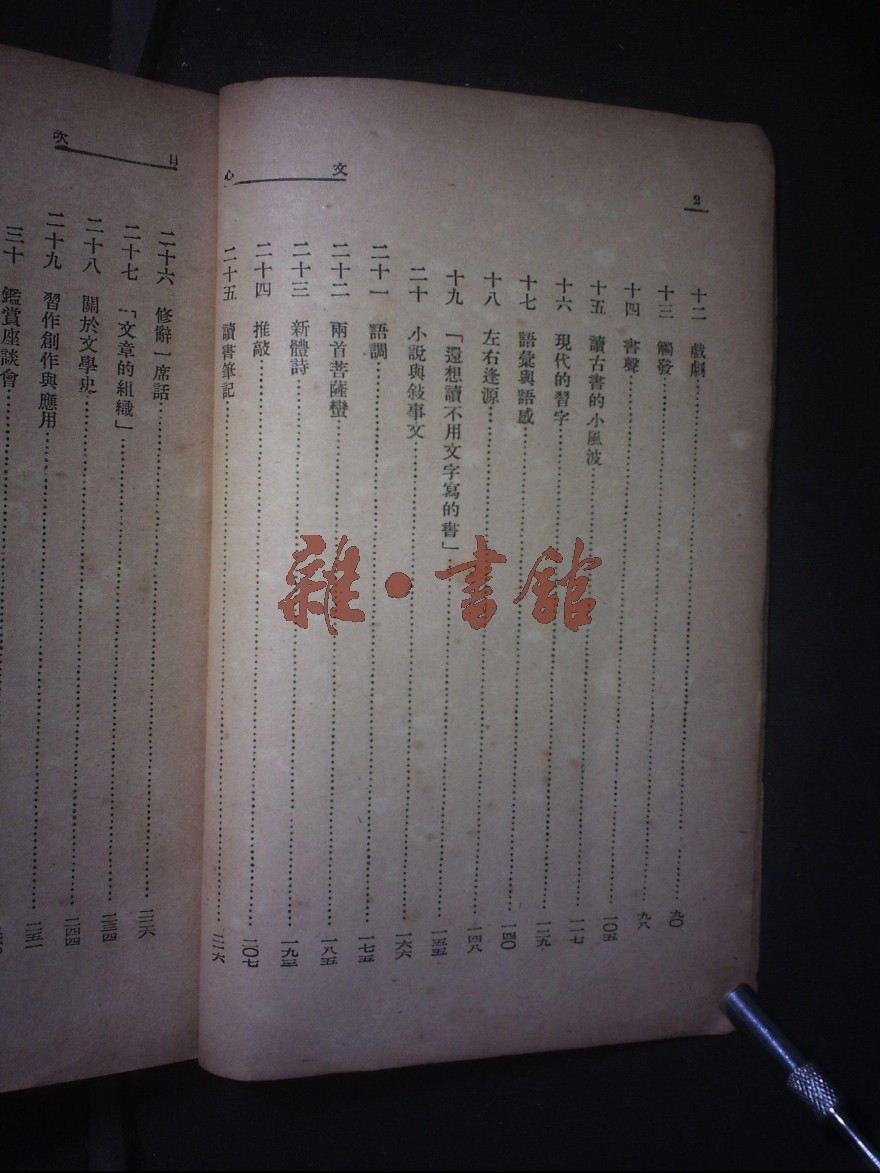 2
文心
十二 戲劇……九〇
十三 觸發……
十四 書聲……九八
十五 讀古書的小風波……一〇五
十六 現代的習字……一一七
十七 語彙與語感……一二九
十八 左右逢源……一四〇
十九 「還想讀不用文字寫的書」……一四八
二十 小說與敍事文……一五五
二十一 語調……一六六
二十二 兩首菩薩蠻……一七五
二十三 新體詩……一八五
二十四 推敲……一九三
二十五 讀書筆記……二〇七
二一六
目次
二十六 修辭一席話……二二六
二十七 「文章的組織」……二三四
二十八 關於文學史……二四四
二十九 習作創作與應用……二五二
三十 鑑賞座談會……
雜·書館